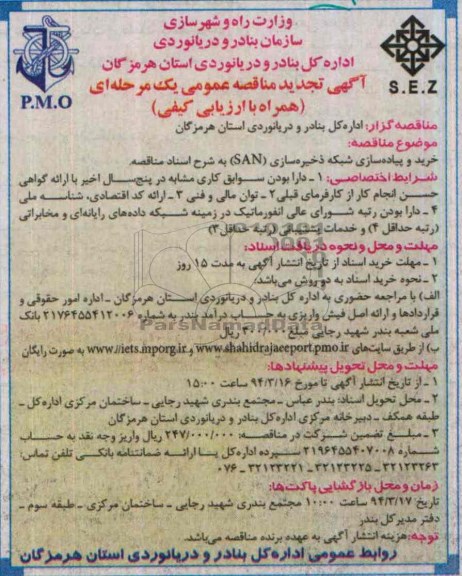 وزارت راه و شهرسازی
سازمان بنادر و دریانوردی
اداره کل بنادر و دریانوردی استان هرمزگان
P.M.O
S.E.Z
آگهی تجدید مناقصه عمومی یک مرحله‌ای
(همراه با ارزیابی کیفی)
مناقصه گزار: اداره کل بنادر و دریانوردی استان هرمزگان
موضوع مناقصه:
خرید و پیاده‌سازی شبکه ذخیره‌سازی (SAN) به شرح اسناد مناقصه.
شرایط اختصاصی: ۱ - دارا بودن سوابق کاری مشابه در پنج‌سال اخیر با ارائه گواهی
حسن انجام کار از کارفرمای قبلی ۲ - توان مالی و فنی ۳ - ارائه کد اقتصادی، شناسه ملی
۴ - دارا بودن رتبه شورای عالی انفورماتیک در زمینه شبکه داده‌های رایانه‌ای و مخابراتی
(رتبه حداقل ۴) و خدمات پشتیبانی (رتبه حداقل ۳)
مهلت و محل و نحوه دریافت اسناد:
۱ - مهلت خرید اسناد از تاریخ انتشار آگهی به مدت ۱۵ روز
۲ - نحوه خرید اسناد به دو روش می‌باشد:
الف) با مراجعه حضوری به اداره کل بنادر و دریانوردی استان هرمزگان - اداره امور حقوقی و
قراردادها و ارائه اصل فیش واریزی به حساب درآمد بندر به شماره ۲۱۷۶۴۵۵۴۱۲۰۰۶ بانک
ملی شعبه بندر شهید رجایی مبلغ ریال
ب) از طریق سایت‌های www.shahidrajaeeport.pmo.ir و www://iets.mporg.ir به صورت رایگان
مهلت و محل تحویل پیشنهادها:
۱ - از تاریخ انتشار آگهی تا مورخ ۹۴/۳/۱۶ ساعت ۱۵:۰۰
۲ - محل تحویل اسناد: بندر عباس - مجتمع بندری شهید رجایی - ساختمان مرکزی اداره کل -
طبقه همکف - دبیرخانه مرکزی اداره کل بنادر و دریانوردی استان هرمزگان
۳ - مبلغ تضمین شرکت در مناقصه: ۲۴۷/۰۰۰/۰۰۰ ریال واریز وجه نقد به حساب
شماره ۲۱۹۶۴۵۵۴۰۷۰۰۸ سپرده اداره کل یا ارائه ضمانتنامه بانکی تلفن تماس:
۳۲۱۲۳۲۶۳ - ۳۲۱۲۳۲۲۵ - ۳۲۱۲۳۲۲۱ - ۰۷۶
زمان و محل بازگشایی پاکت‌ها:
تاریخ: ۹۴/۳/۱۷ ساعت ۱۰:۰۰ مجتمع بندری شهید رجایی - ساختمان مرکزی - طبقه سوم -
دفتر مدیر کل بندر
توجه: هزینه انتشار آگهی به عهده برنده مناقصه می‌باشد.
روابط عمومی اداره کل بنادر و دریانوردی استان هرمزگان
ParsNamadData